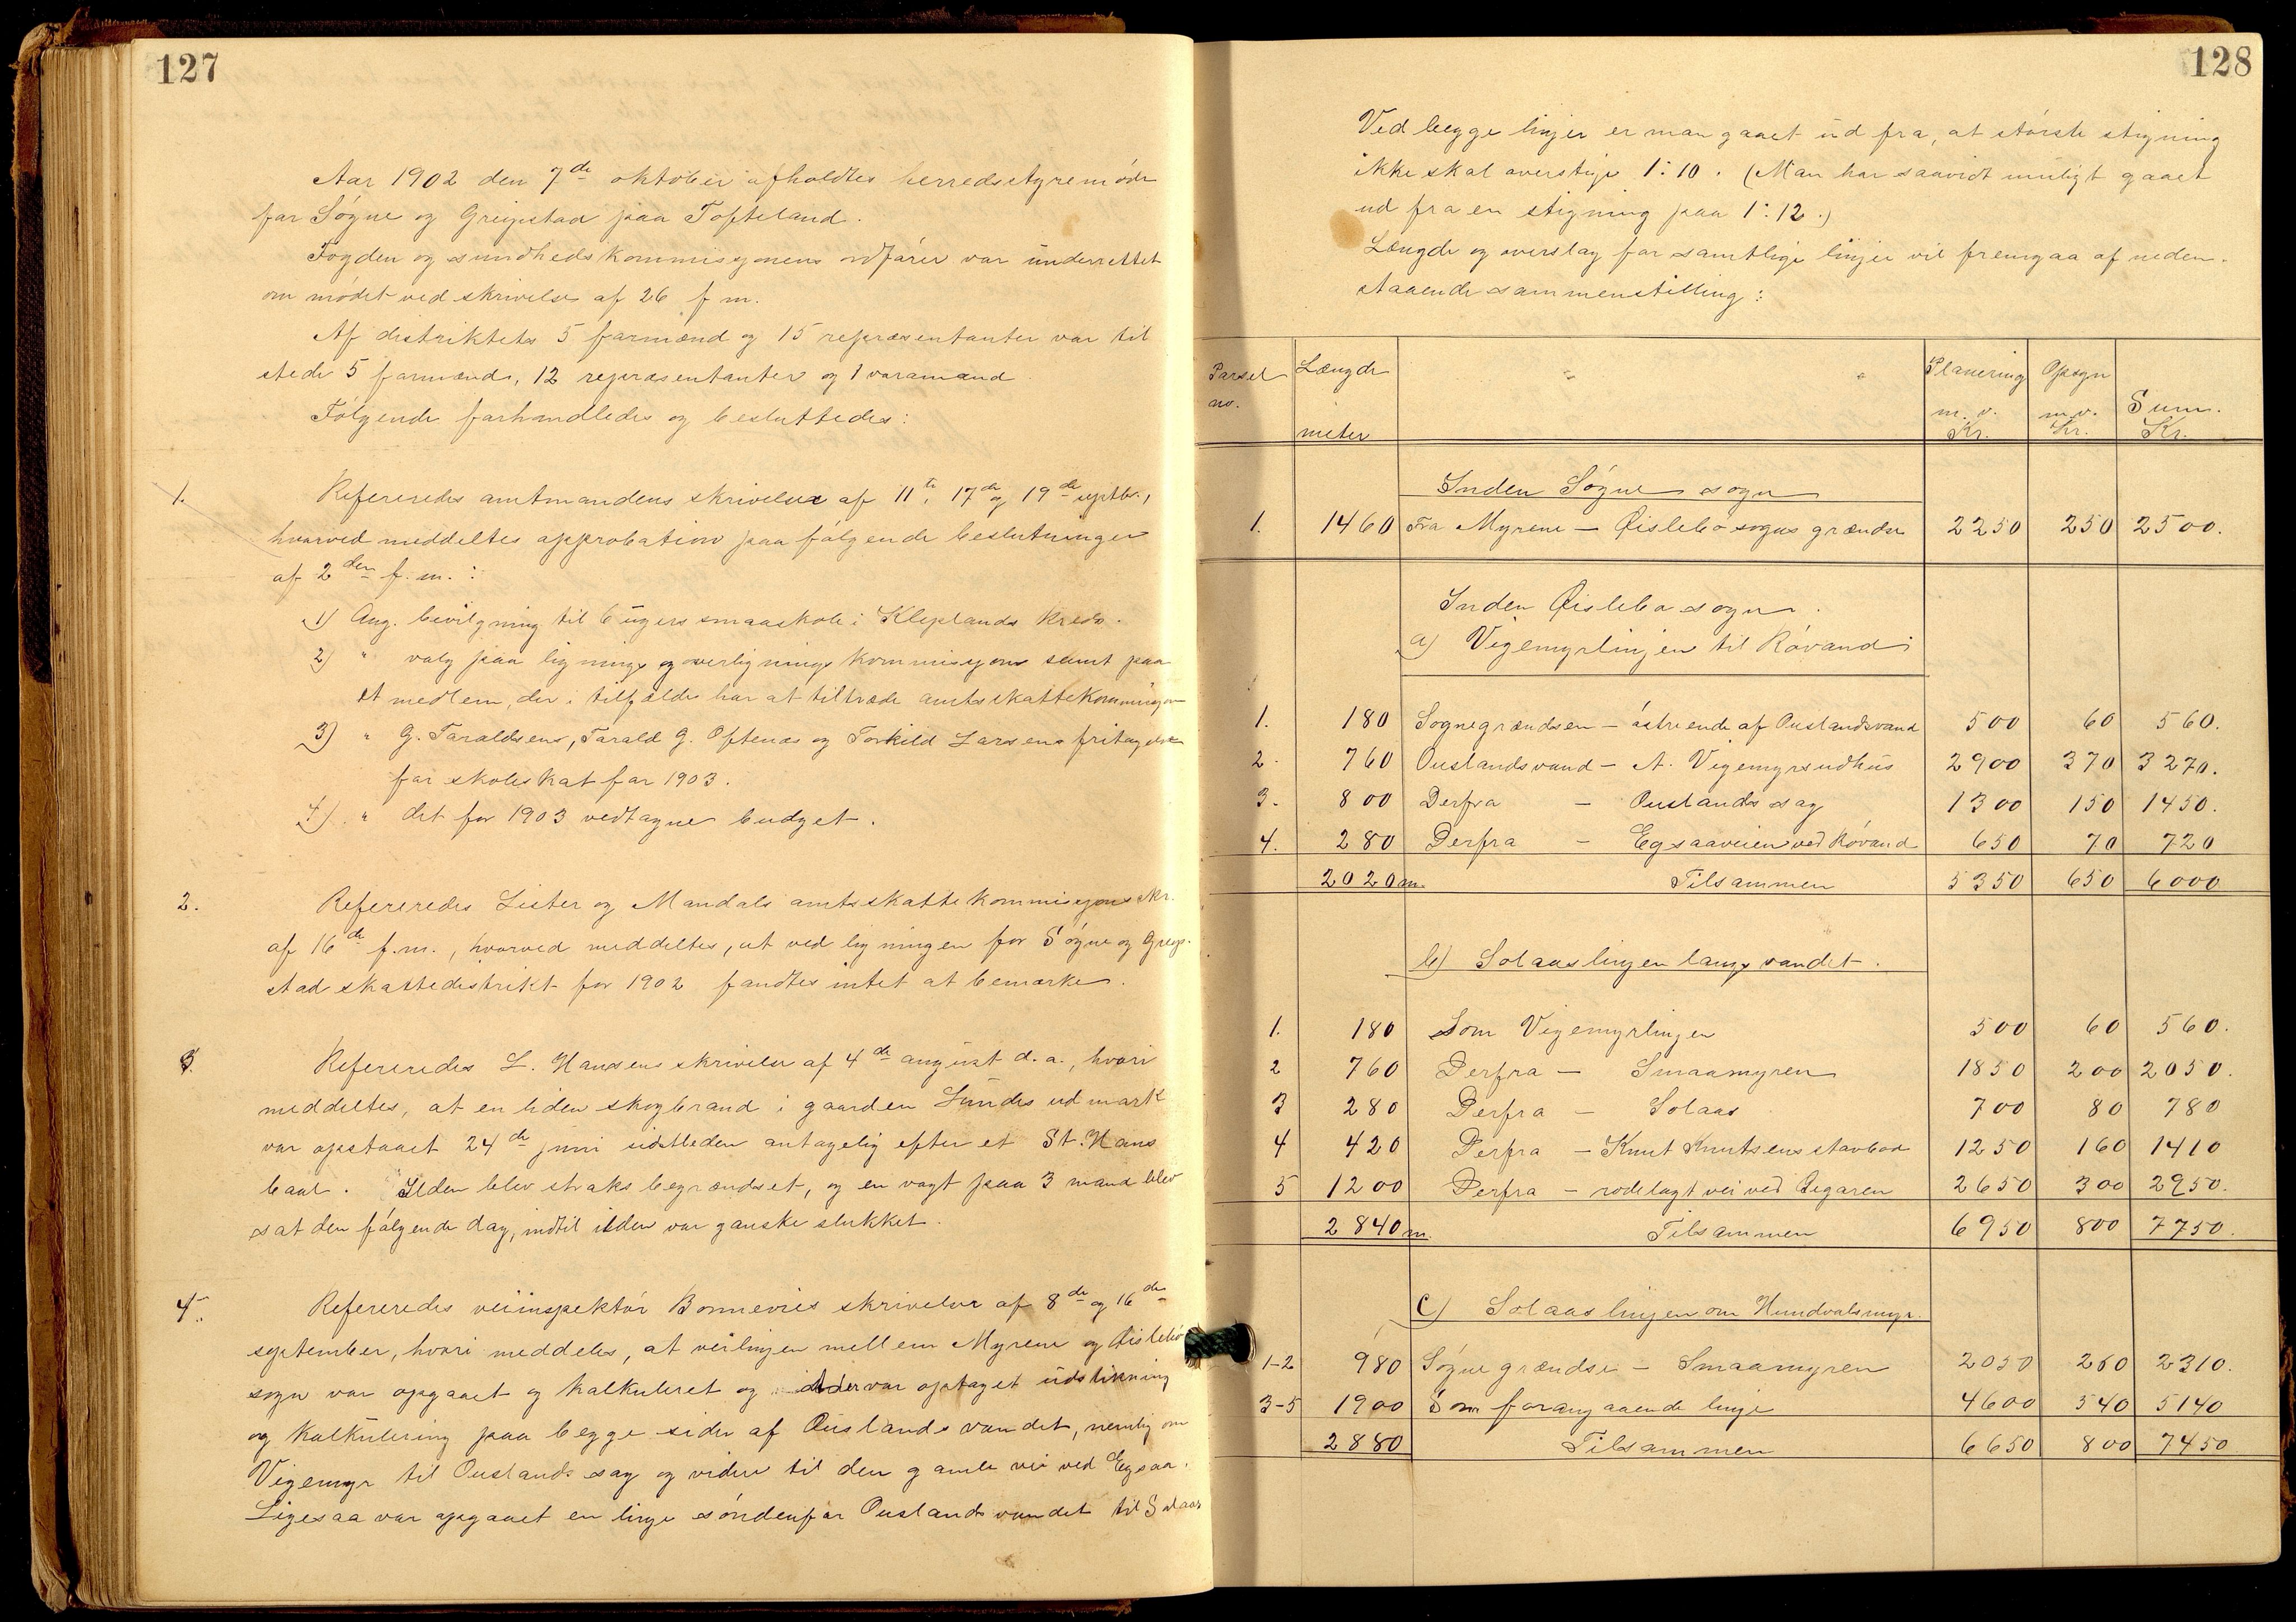 127
Aar 1902 den 7de oktober afholdtes herredsstyremöde
for Sögne og Greipstad paa Tofteland.
Fogden og sundhedskommisjonens ordförer var underrettet
om mödet ved skrivelse af 26 f. m.
Af distriktets 5 formænd og 15 repræsentanter var til
stede 5 formænd, 12 repræsentanter og 1 varamand
Fölgende forhandledes og besluttedes:
1. Refereredes amtmandens skrivelser af 11te, 17de og 19de septbr.,
hvorved meddeltes approbation paa fölgende beslutninger
af 2den f. m.:
1) Ang. bevilgning til 6 ugers smaaskole i Kleplands kreds.
2) " valg paa lignings og overligningskommisjon samt paa
et medlem, der i tilfælde har at tiltræde amtsskattekommisjon
3) " G. Taraldsens, Tarald G. Oftenæs og Torkild Larsens fritagelse
for skoleskat for 1903.
4) " det for 1903 vedtagne budget.
2. Refereredes Lister og Mandals amtsskattekommisjons skr.
af 16de f. m., hvorved meddeltes, at ved ligningen for Sögne og Greip-
stad skattedistrikt for 1902 fandtes intet at bemærke.
3. Refereredes L. Hansens skrivelse af 4de august d. a., hvori
meddeltes, at en liden skogbrand i gaarden Lundes udmark
var opstaaet 24de juni sidstleden antagelig efter et St. Hans
baal. Ilden blev straks begrændset, og en vagt paa 3 mand blev
sat den fölgende dag, indtil ilden var ganske slukket.
4. Refereredes veiinspektör Bonnevies skrivelser af 8de og 16de
september, hvori meddeles, at veilinjen mellem Myrene og Öislebö
sogn var opgaaet og kalkuleret og der var optaget udstikning
og kalkulering paa begge sider af Ouslandsvandet, nemlig om
Vigemyr til Ouslands sag og videre til den gamle vei ved Egsaa.
Ligesaa var opgaaet en linje söndenfor Ouslandsvandet til Solaas
128
Ved begge linjer er man gaaet ud fra, at störste stigning
ikke skal overstige 1:10. (Man har saavidt muligt gaaet
ud fra en stigning paa 1:12.)
Længde og overslag for samtlige linjer vil fremgaa af neden-
staaende sammenstilling:
Parsel no. Længde meter Planering m. v. Kr. Opsyn m. v. Kr. Sum. Kr.
Inden Sögne sogn
1. 1460 Fra Myrene – Öislebo sogns grændse 2250 250 2500.
Inden Öislebo sogn.
a) Vigemyrlinjen til Rövand
1. 180 Sognegrændsen – östre ende af Ouslandsvand 500 60 560.
2. 760 Ouslandsvand – A. Vigemyrs udhus 2900 370 3270.
3. 800 Derfra – Ouslands sag 1300 150 1450.
4. 280 Derfra – Egsaaveien ved Rövand 650 70 720
2020 m. Tilsammen 5350 650 6000
b) Solaaslinjen langs vandet.
1. 180 Som Vigemyrlinjen 500 60 560.
2 760 Derfra – Smaamyren 1850 200 2050.
3 280 Derfra – Solaas 700 80 780
4 420 Derfra – Knut Knutsens stavbod 1250 160 1410
5 1200 Derfra – rodelagt vei ved 2650 300 2950.
2840 m. Tilsammen 6950 800 7750.
c) Solaaslinjen om Hundvalsmyr.
1-2 980 Sögne grændse – Smaamyren 2050 260 2310.
3-5 1900 Som forangaaende linje 4600 540 5140
2880 Tilsammen 6650 800 7450